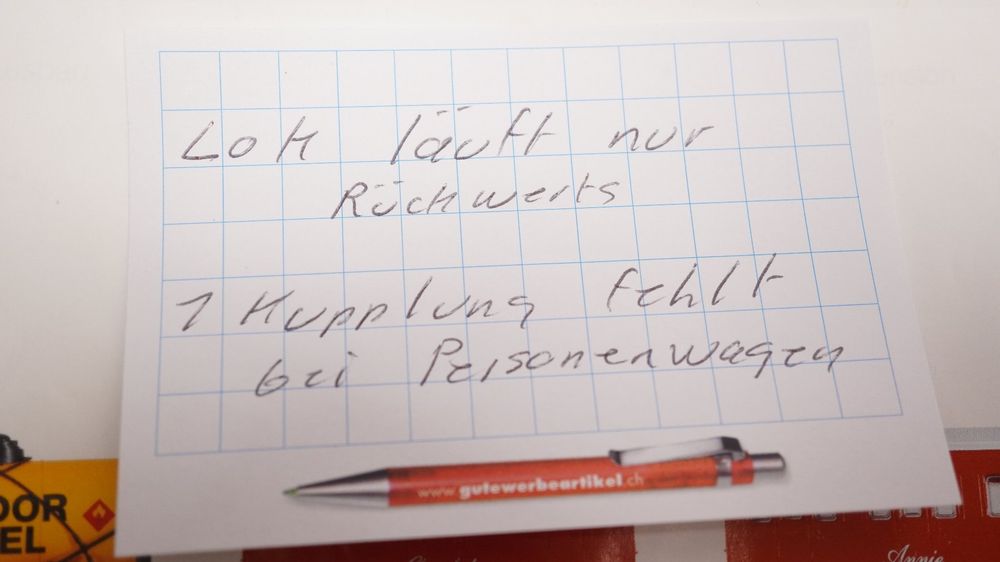 Lok läuft nur
Rückwerts
1 Kupplung fehlt
bei Personenwagen
www.gutewerbeartikel.ch
OOR
EL
Annie